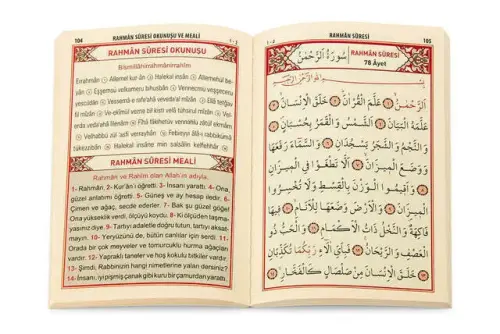 104 RAHMÂN SÛRESİ OKUNUŞU VE MEALİ 1 - 2
RAHMÂN SÛRESİ OKUNUŞU
Bismillâhirrahmânirrahîm
Errahmân ① Allemel kur'ân ② Halekal insân ③ Allemehül be-
yân ④ Eşşemsü velkameru bihusbân ⑤ Vennecmü veşşeceru
yescüdân ⑥ Vessemâe rafeahâ ve vedaal mîzân ⑦ Ellâ tetğav
fil mîzân ⑧ Ve ekîmul vezne bil kıstı velâ tuhsirul mîzân ⑨ Vel-
erda vedaahâ lilenâm ⑩ Fîhâ fâkihetüv vennahlü zâtül ekmâm
⑪ Velhabbü zül asfi verrayhân ⑫ Febieyyi âlâ-i rabbikümâ
tükezzibân ⑬ Halekal insâne min salsâlin kelfehhâr ⑭
RAHMÂN SÛRESİ MEALİ
Rahmân ve Rahîm olan Allah'ın adıyla.
1- Rahmân, 2- Kur'ân'ı öğretti. 3- İnsanı yarattı. 4- Ona,
güzel anlatımı öğretti. 5- Güneş ve ay hesap iledir. 6-
Çimen ve ağaç, secde ederler. 7- Bak şu güzel göğe!
Onu yükseklik verdi, ölçüyü koydu. 8- Ki ölçüden taşma-
yasınız diye. 9- Tartıyı adaletle doğru tutun, tartıyı aksat-
mayın. 10- Yeryüzünü de, bütün canlılar için döşedi. 11-
Orada bir çok meyveler ve tomurcuklu hurma ağaçları
vardır. 12- Yapraklı taneler ve hoş kokulu bitkiler vardır.
13- Şimdi, Rabbinizin hangi nimetlerine yalan dersiniz?
14- İnsanı, iyi pişmiş çanak gibi kuru bir çamurdan yarattı.
1 - 2 RAHMÂN SÛRESİ 105
RAHMÂN SÛRESİ سُورَةُ الرَّحْمٰنِ
78 Âyet
بِسْمِ اللّٰهِ الرَّحْمٰنِ الرَّحِيمِ
اَلرَّحْمٰنُ ۝ عَلَّمَ الْقُرْاٰنَ ۝ خَلَقَ الْاِنْسَانَ ۝
عَلَّمَهُ الْبَيَانَ ۝ اَلشَّمْسُ وَالْقَمَرُ بِحُسْبَانٍ ۝
وَالنَّجْمُ وَالشَّجَرُ يَسْجُدَانِ ۝ وَالسَّمَٓاءَ رَفَعَهَا
وَوَضَعَ الْمِيزَانَ ۝ اَلَّا تَطْغَوْا فِي الْمِيزَانِ ۝
وَاَقِيمُوا الْوَزْنَ بِالْقِسْطِ وَلَا تُخْسِرُوا
الْمِيزَانَ ۝ وَالْاَرْضَ وَضَعَهَا لِلْاَنَامِ ۝ فِيهَا
فَاكِهَةٌ وَالنَّخْلُ ذَاتُ الْاَكْمَامِ ۝ وَالْحَبُّ ذُو
الْعَصْفِ وَالرَّيْحَانُ ۝ فَبِاَيِّ اٰلَٓاءِ رَبِّكُمَا تُكَذِّبَانِ
۝ خَلَقَ الْاِنْسَانَ مِنْ صَلْصَالٍ كَالْفَخَّارِ ۝